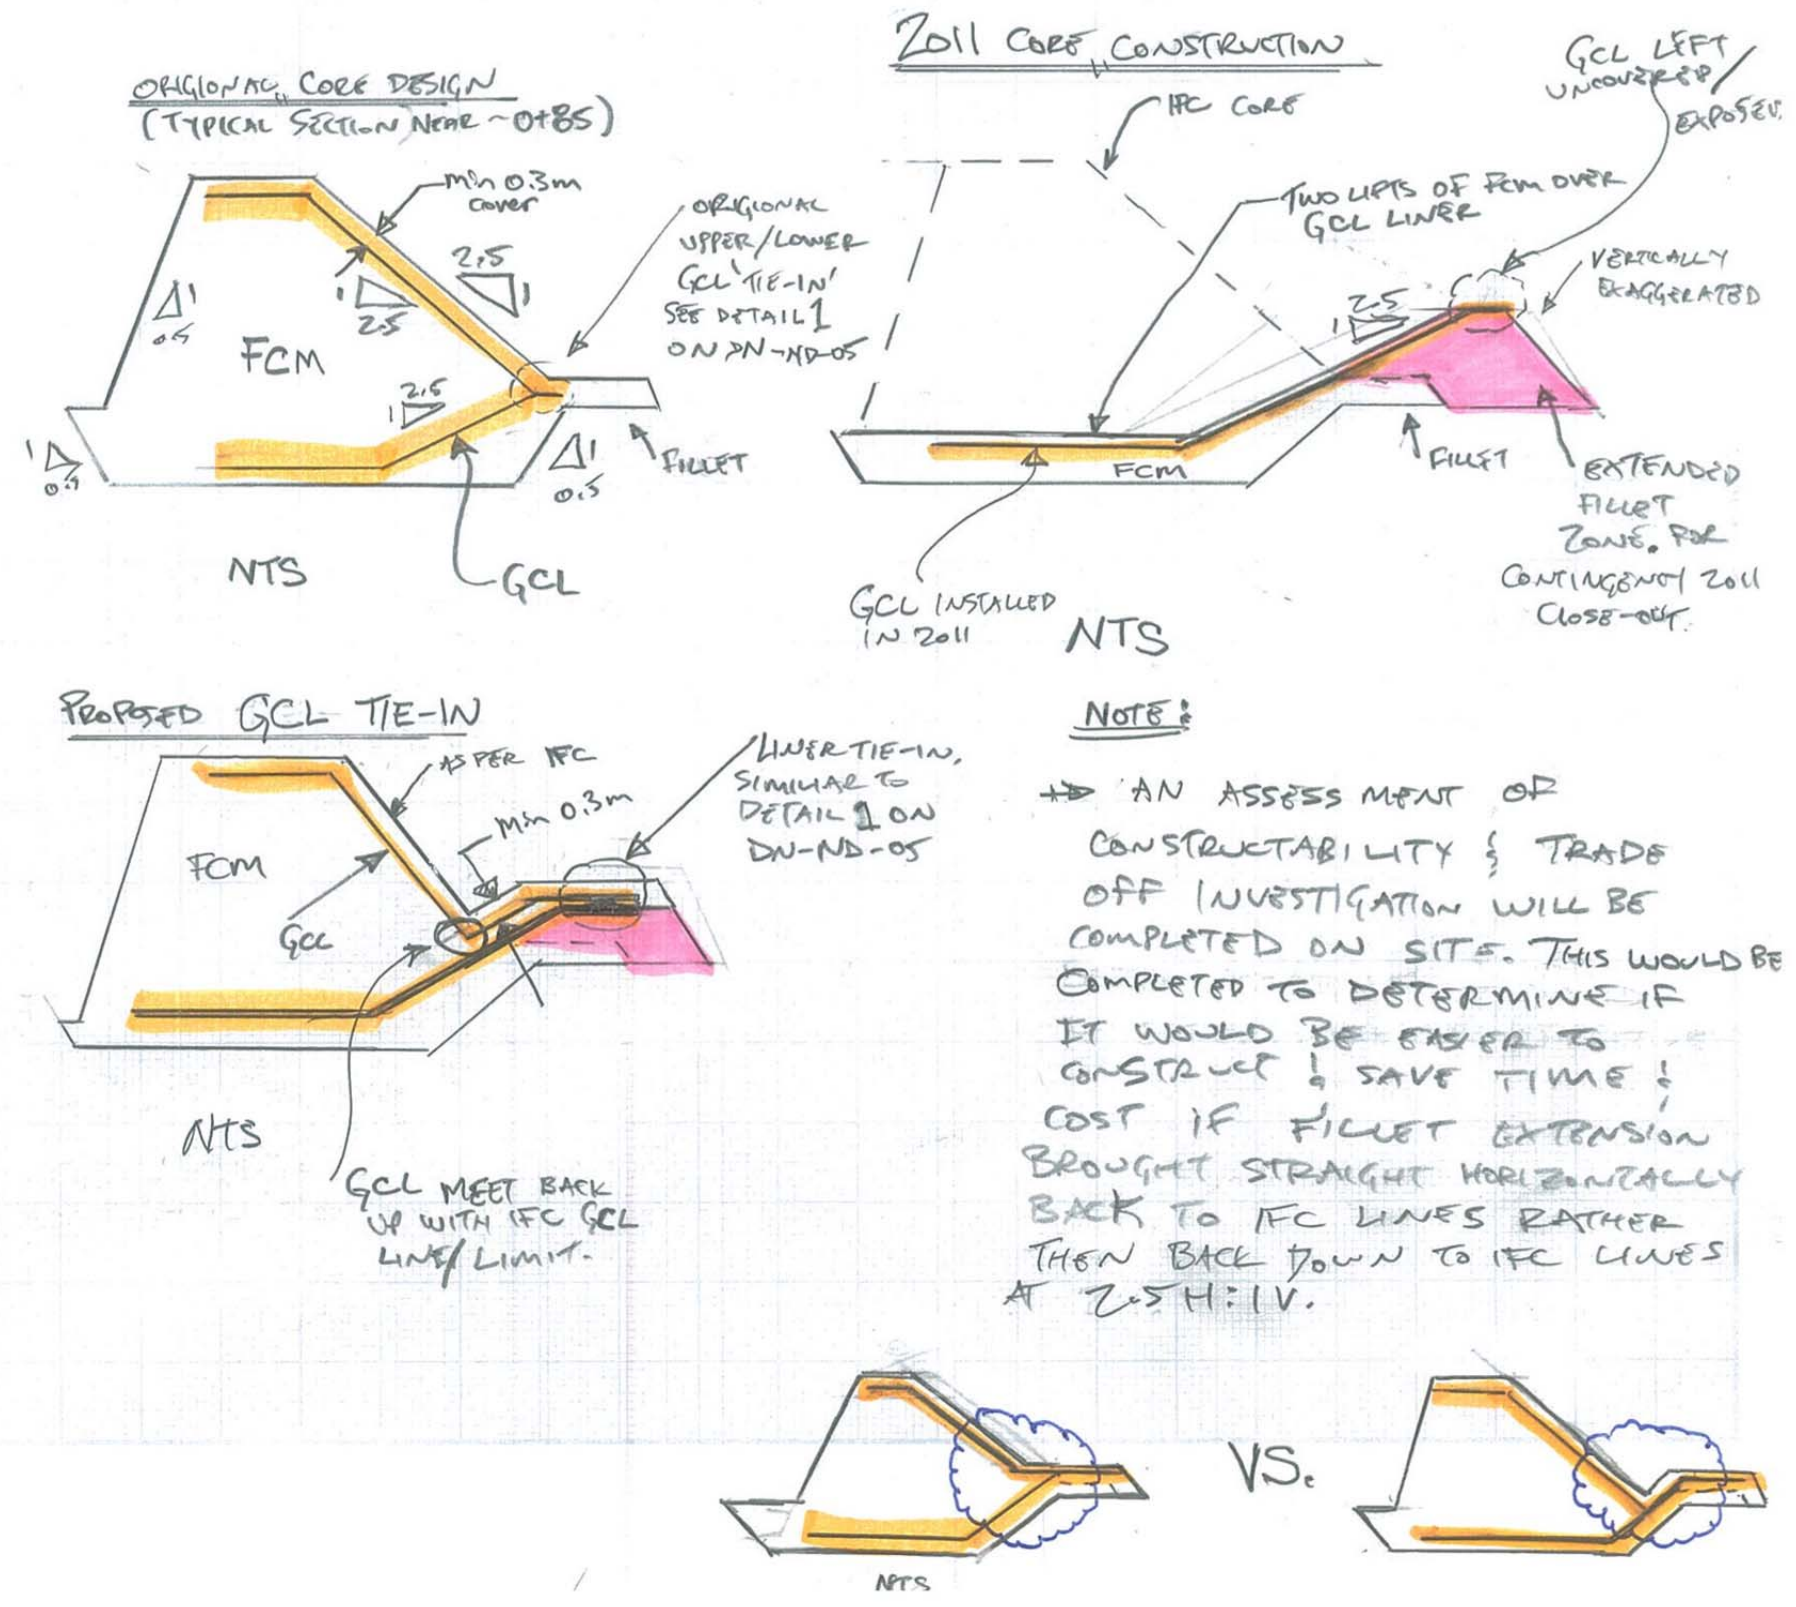 ORIGIONAL CORE DESIGN
(TYPICAL SECTION NEAR ~0+85)
min 0.3m
cover
2.5
1
1
2.5
1
0.5
FCM
2.5
1
1
0.5
1
0.5
FILLET
ORIGIONAL
UPPER/LOWER
GCL 'TIE-IN'
SEE DETAIL 1
ON DN-ND-05
NTS
GCL
2011 CORE CONSTRUCTION
IFC CORE
GCL LEFT
UNCOVERED/
EXPOSED.
TWO LIFTS OF FCM OVER
GCL LINER
VERTICALLY
EXAGGERATED
2.5
1
FCM
FILLET
EXTENDED
FILLET
ZONE. FOR
CONTINGENCY 2011
CLOSE-OUT.
GCL INSTALLED
IN 2011
NTS
PROPOSED GCL TIE-IN
AS PER IFC
min 0.3m
LINER TIE-IN,
SIMILIAR TO
DETAIL 1 ON
DN-ND-05
FCM
GCL
NTS
GCL MEET BACK
UP WITH IFC GCL
LINE/LIMIT.
NOTE:
AN ASSESSMENT OF
CONSTRUCTABILITY & TRADE
OFF INVESTIGATION WILL BE
COMPLETED ON SITE. THIS WOULD BE
COMPLETED TO DETERMINE IF
IT WOULD BE EASIER TO
CONSTRUCT & SAVE TIME &
COST IF FILLET EXTENSION
BROUGHT STRAIGHT HORIZONTALLY
BACK TO IFC LINES RATHER
THEN BACK DOWN TO IFC LINES
AT 2.5H:1V.
VS.
NTS